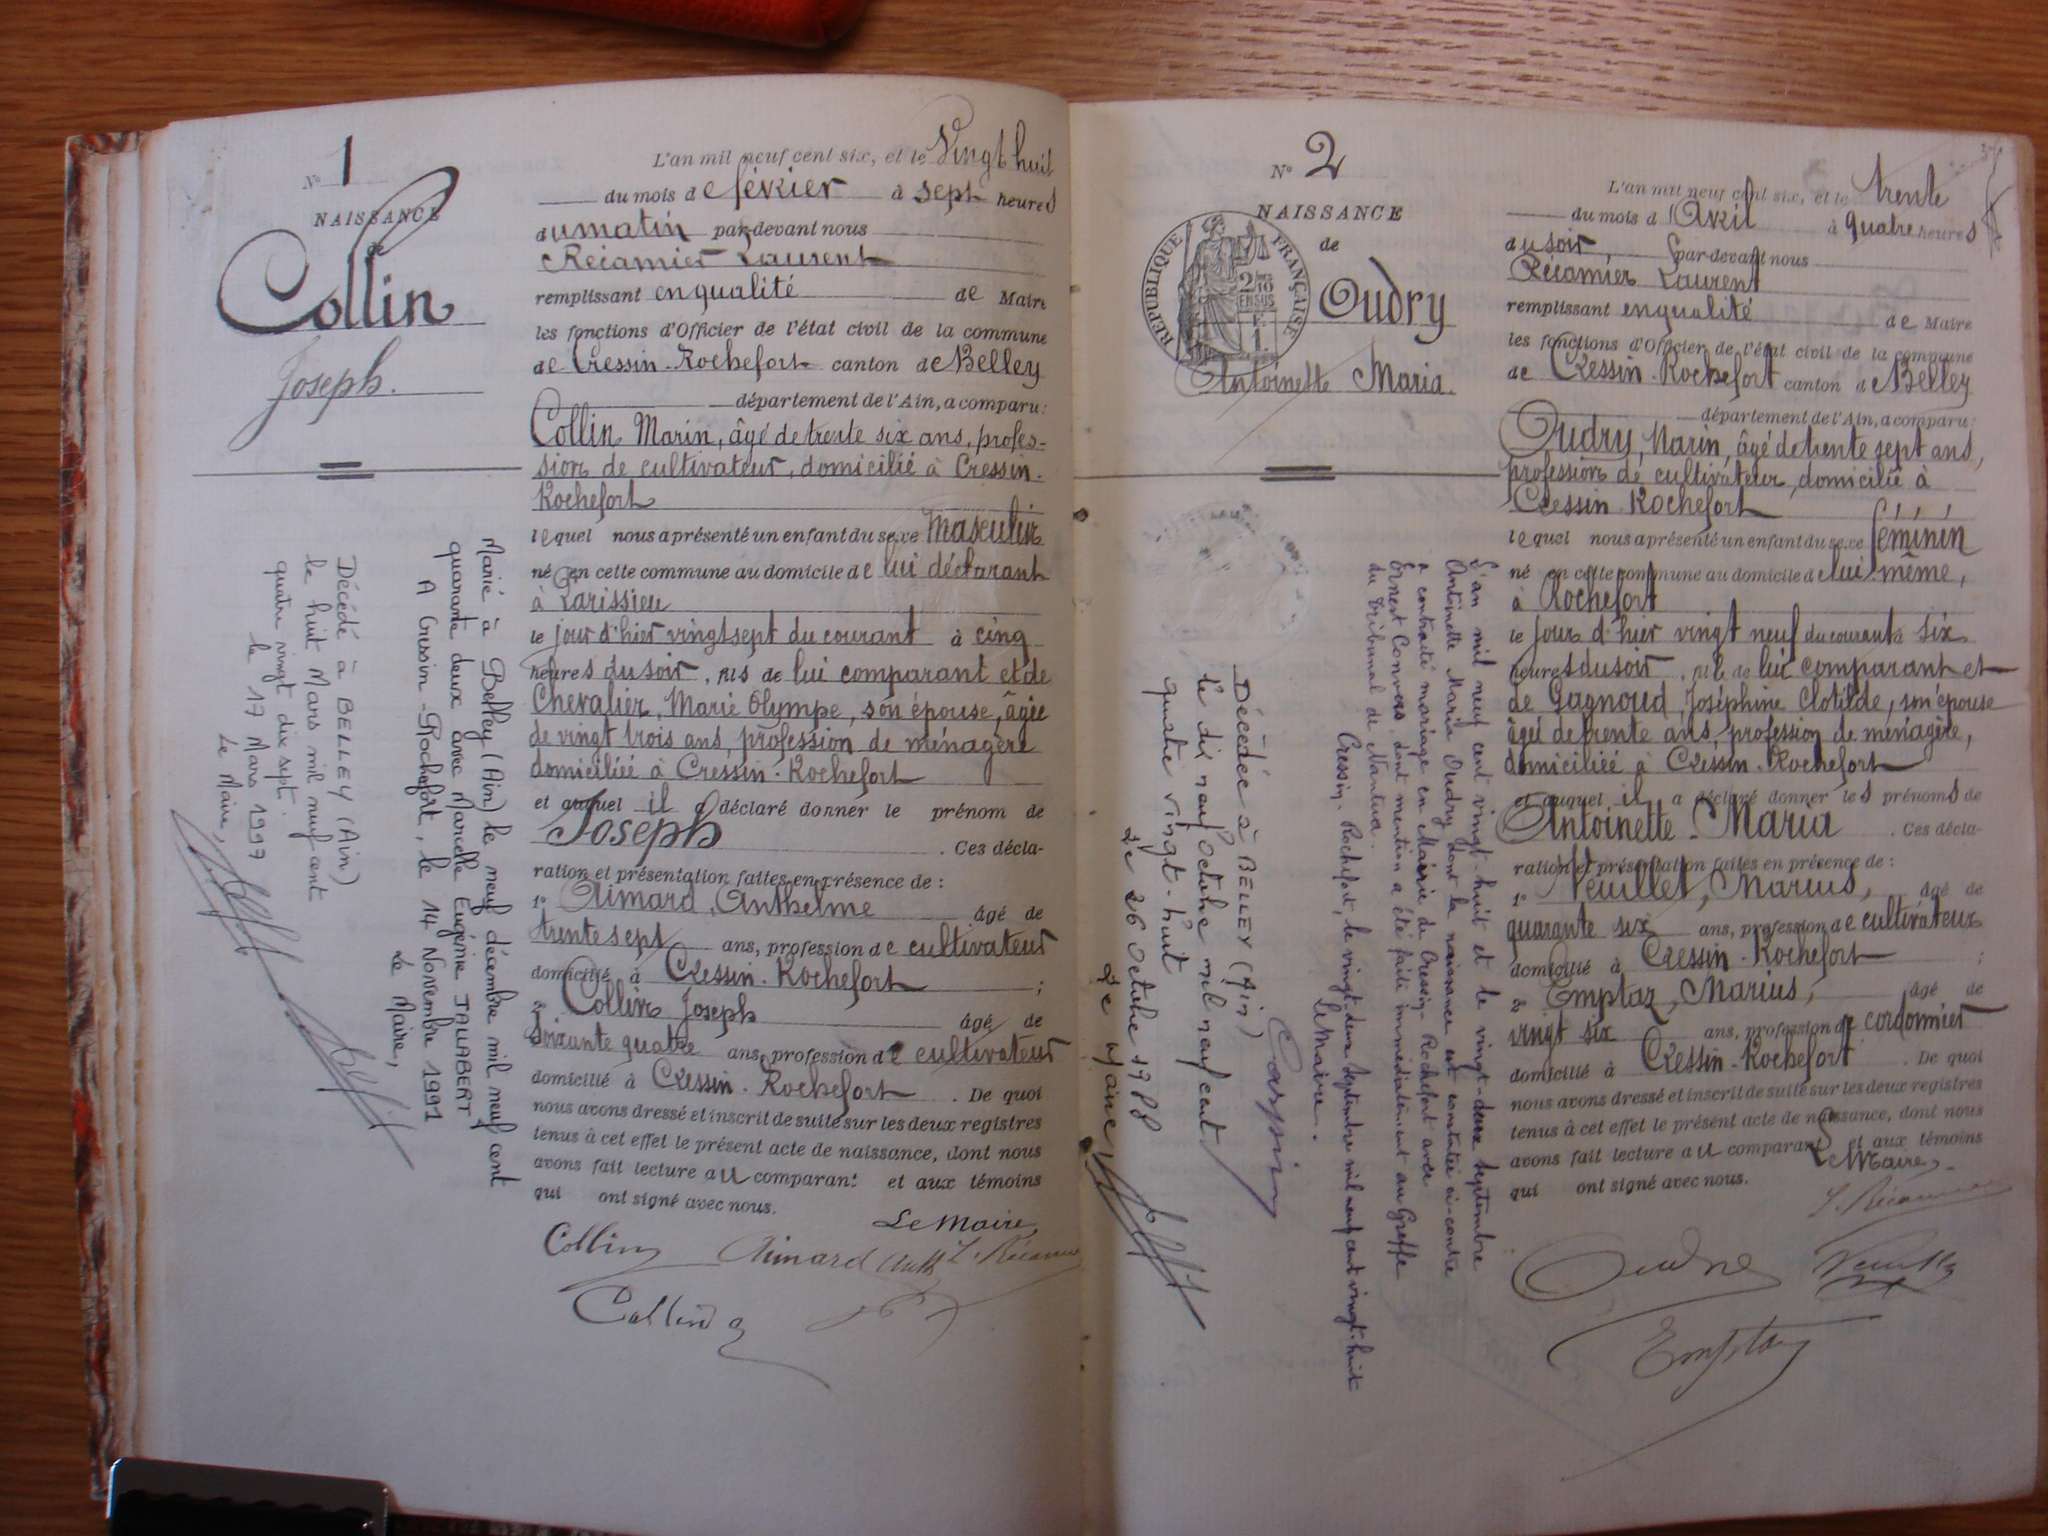 N° 1
NAISSANCE
de
Collin
Joseph.
L'an mil neuf cent six, et le Vingt huit
du mois de février à sept heures
du matin par-devant nous
Récamier Laurent
remplissant en qualité de Maire
les fonctions d'Officier de l'état civil de la commune
de Cressin-Rochefort canton de Belley
département de l'Ain, a comparu:
Collin Marin, âgé de trente six ans, profes-
sion de cultivateur, domicilié à Cressin-
Rochefort
lequel nous a présenté un enfant du sexe Masculin
né en cette commune au domicile de lui déclarant
à Larissieu
le jour d'hier vingt sept du courant à cinq
heures du soir, fils de lui comparant et de
Chevalier, Marie Olympe, son épouse, âgée
de vingt trois ans, profession de ménagère
domiciliée à Cressin-Rochefort
et auquel il a déclaré donner le prénom de
Joseph. Ces décla-
ration et présentation faites en présence de :
1° Aimard, Anthelme âgé de
trente sept ans, profession de cultivateur
domicilié à Cressin-Rochefort ;
2° Collin Joseph âgé de
soixante quatre ans, profession de cultivateur
domicilié à Cressin-Rochefort. De quoi
nous avons dressé et inscrit de suite sur les deux registres
tenus à cet effet le présent acte de naissance, dont nous
avons fait lecture au comparant et aux témoins
qui ont signé avec nous.
Le Maire,
Collin Aimard Anth L. Récamier
Collin
Marié à Belley (Ain) le neuf décembre mil neuf cent
quarante deux avec Marcelle Eugénie JALLABERT
A Cressin-Rochefort, le 14 Novembre 1991
Le Maire,
Décédé à BELLEY (Ain)
le huit Mars mil neuf cent
quatre vingt dix sept.
le 17 Mars 1997
Le Maire,
N° 2
NAISSANCE
de
RÉPUBLIQUE FRANÇAISE
2/10
EN SUS
Oudry
Antoinette Maria
L'an mil neuf cent six, et le trente
du mois d'Avril à quatre heures
du soir, par-devant nous
Récamier Laurent
remplissant en qualité de Maire
les fonctions d'Officier de l'état civil de la commune
de Cressin-Rochefort canton de Belley
département de l'Ain, a comparu:
Oudry, Marin, âgé de trente sept ans,
profession de cultivateur, domicilié à
Cressin-Rochefort
lequel nous a présenté un enfant du sexe féminin
né en cette commune au domicile de lui-même,
à Rochefort
le jour d'hier vingt neuf du courant à six
heures du soir, fille de lui comparant et
de Gagnoud, Joséphine Clotilde, son épouse
âgée de trente ans, profession de ménagère,
domiciliée à Cressin-Rochefort
et auquel il a déclaré donner les prénoms de
Antoinette-Maria. Ces décla-
ration et présentation faites en présence de :
1° Veuillet, Marius, âgé de
quarante six ans, profession de cultivateur
domicilié à Cressin-Rochefort ;
2° Emptaz, Marius, âgé de
vingt six ans, profession de cordonnier
domicilié à Cressin-Rochefort. De quoi
nous avons dressé et inscrit de suite sur les deux registres
tenus à cet effet le présent acte de naissance, dont nous
avons fait lecture au comparant et aux témoins
qui ont signé avec nous.
Le Maire,
L. Récamier
Veuillet
Emptaz
L'an mil neuf cent vingt huit et le vingt-deux septembre
Antoinette Maria Oudry dont la naissance est constatée ci-contre
a contracté mariage en Mairie de Cressin-Rochefort avec
Ernest Convers, dont mention a été faite immédiatement au Greffe
du Tribunal de Nantua.
Cressin-Rochefort, le vingt-deux septembre mil neuf cent vingt-huit
Le Maire.
Décédée à BELLEY (Ain)
le dix neuf octobre mil neuf cent
quatre vingt-huit
Le 26 octobre 1988
Le Maire